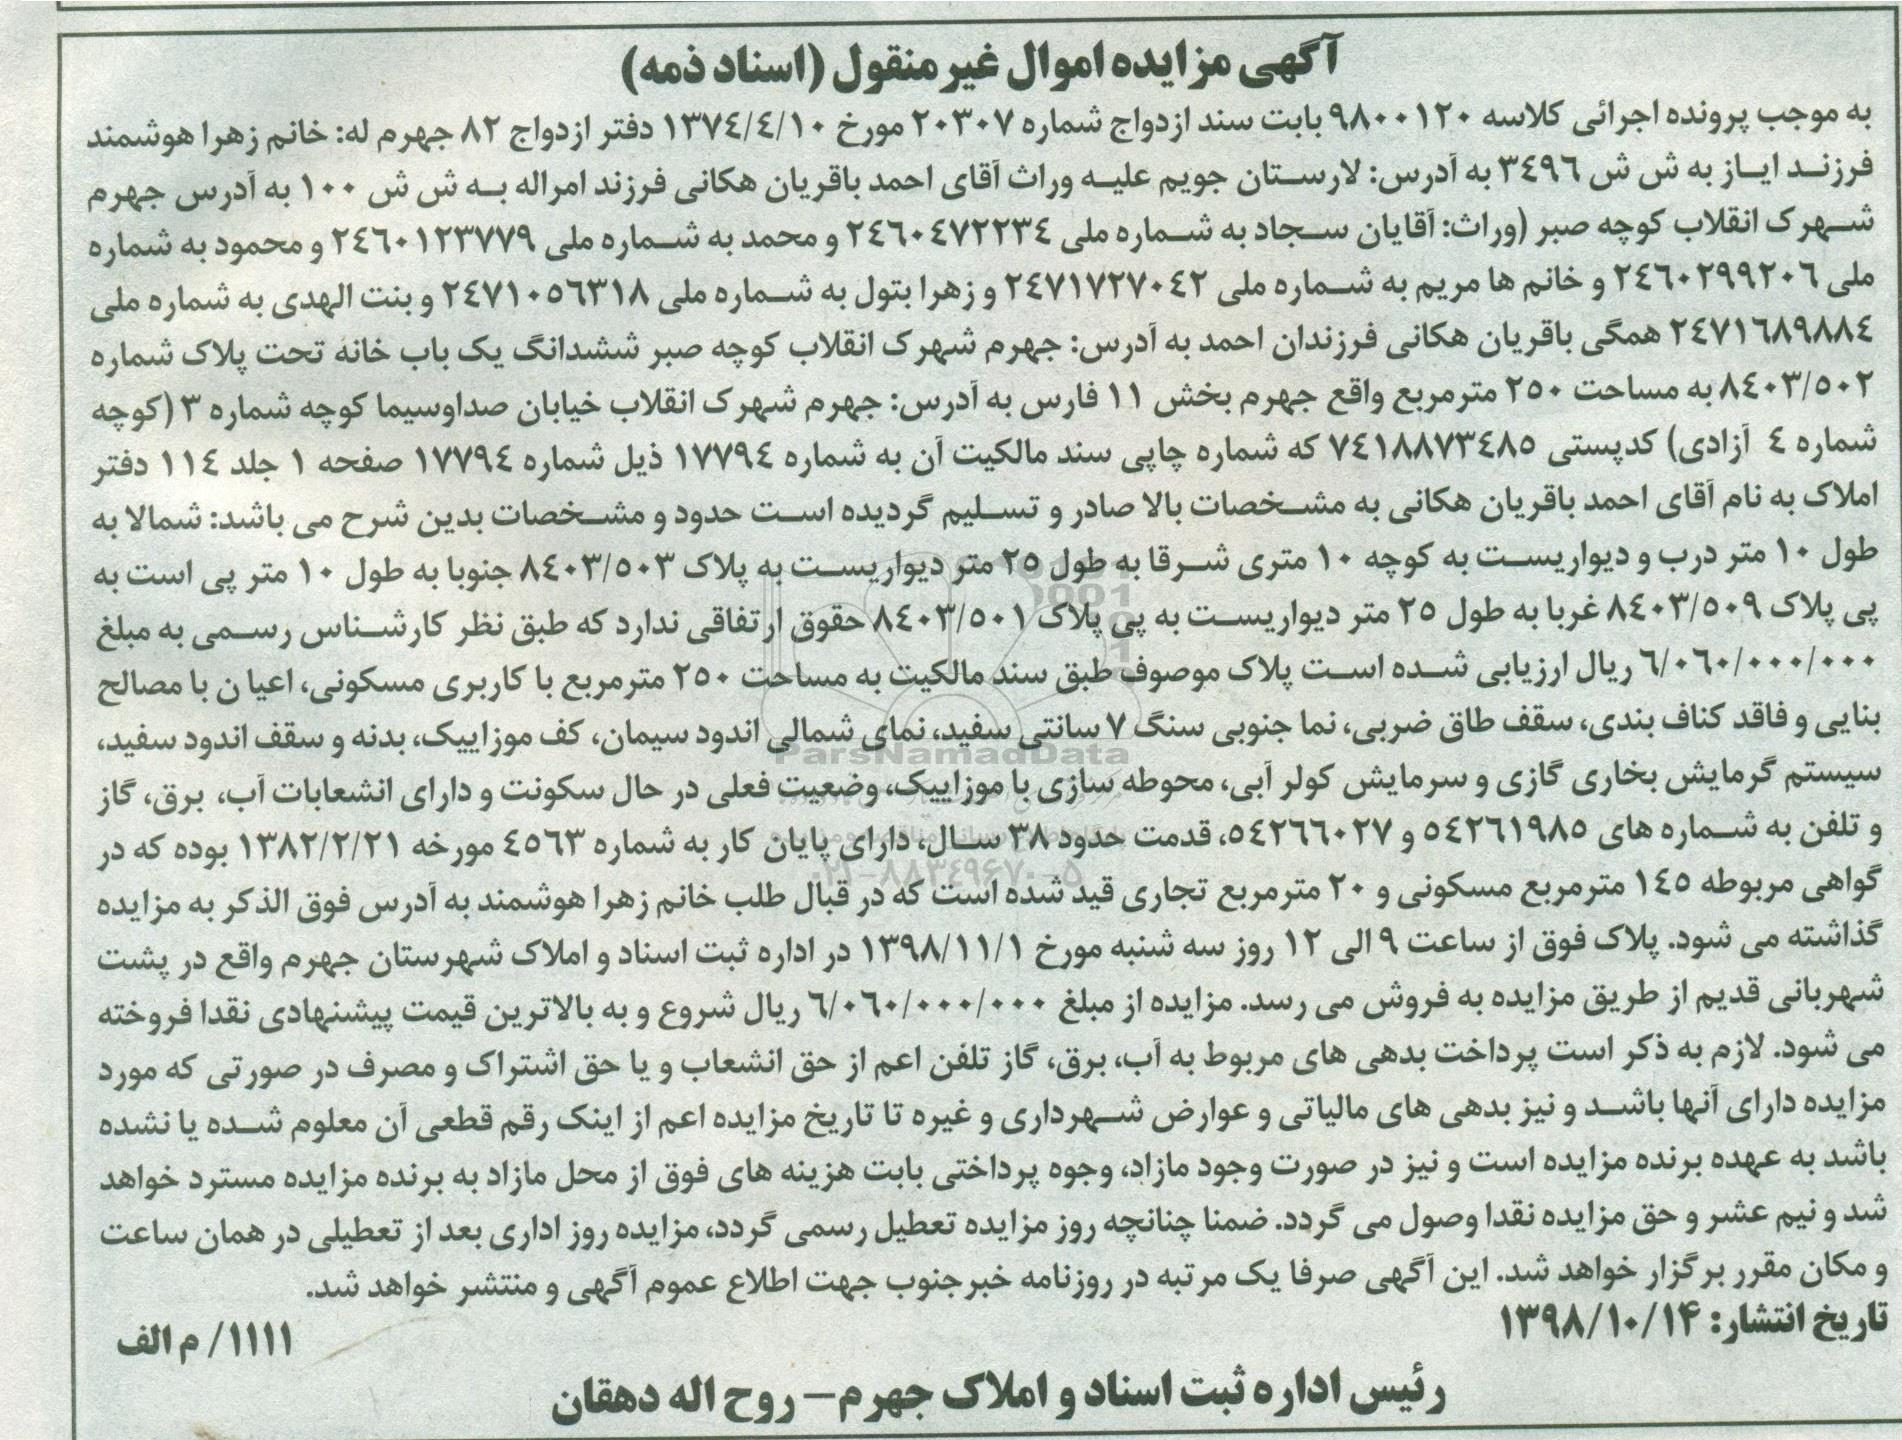 آگهی مزایده اموال غیر منقول (اسناد ذمه)
به موجب پرونده اجرائی کلاسه ٩٨٠٠١٢٠ بابت سند ازدواج شماره ٢٠٣٠٧ مورخ ١٣٧٤/٤/١٠ دفتر ازدواج ٨٢ جهرم له: خانم زهرا هوشمند
فرزند ایاز به ش ش ٣٤٩٦ به آدرس: لارستان جویم علیه وراث آقای احمد باقریان هکانی فرزند امراله به ش ش ١٠٠ به آدرس جهرم
شهرک انقلاب کوچه صبر (وراث: آقایان سجاد به شماره ملی ٢٤٦٠٤٧٢٢٣٤ و محمد به شماره ملی ٢٤٦٠١٢٣٧٧٩ و محمود به شماره
ملی ٢٤٦٠٢٩٩٢٠٦ و خانم ها مریم به شماره ملی ٢٤٧١٧٢٧٠٤٢ و زهرا بتول به شماره ملی ٢٤٧١٠٥٦٣١٨ و بنت الهدی به شماره ملی
٢٤٧١٦٨٩٨٨٤ همگی باقریان هکانی فرزندان احمد به آدرس: جهرم شهرک انقلاب کوچه صبر ششدانگ یک باب خانه تحت پلاک شماره
٨٤٠٣/٥٠٢ به مساحت ٢٥٠ مترمربع واقع جهرم بخش ١١ فارس به آدرس: جهرم شهرک انقلاب خیابان صداوسیما کوچه شماره ٣ (کوچه
شماره ٤ آزادی) کدپستی ٧٤١٨٨٧٣٤٨٥ که شماره چاپی سند مالکیت آن به شماره ١٧٧٩٤ ذیل شماره ١٧٧٩٤ صفحه ١ جلد ١١٤ دفتر
املاک به نام آقای احمد باقریان هکانی به مشخصات بالا صادر و تسلیم گردیده است حدود و مشخصات بدین شرح می باشد: شمالا به
طول ١٠ متر درب و دیواریست به کوچه ١٠ متری شرقا به طول ٢٥ متر دیواریست به پلاک ٨٤٠٣/٥٠٣ جنوبا به طول ١٠ متر پی است به
پی پلاک ٨٤٠٣/٥٠٩ غربا به طول ٢٥ متر دیواریست به پی پلاک ٨٤٠٣/٥٠١ حقوق ارتفاقی ندارد که طبق نظر کارشناس رسمی به مبلغ
٦/٠٦٠/٠٠٠/٠٠٠ ریال ارزیابی شده است پلاک موصوف طبق سند مالکیت به مساحت ٢٥٠ مترمربع با کاربری مسکونی، اعیان با مصالح
بنایی و فاقد کناف بندی، سقف طاق ضربی، نما جنوبی سنگ ٧ سانتی سفید، نمای شمالی اندود سیمان، کف موزاییک، بدنه و سقف اندود سفید،
سیستم گرمایش بخاری گازی و سرمایش کولر آبی، محوطه سازی با موزاییک، وضعیت فعلی در حال سکونت و دارای انشعابات آب، برق، گاز
و تلفن به شماره های ٥٤٢٦١٩٨٥ و ٥٤٢٦٦٠٢٧، قدمت حدود ٣٨ سال، دارای پایان کار به شماره ٤٥٦٣ مورخه ١٣٨٢/٢/٢١ بوده که در
گواهی مربوطه ١٤٥ مترمربع مسکونی و ٢٠ مترمربع تجاری قید شده است که در قبال طلب خانم زهرا هوشمند به آدرس فوق الذکر به مزایده
گذاشته می شود. پلاک فوق از ساعت ٩ الی ١٢ روز سه شنبه مورخ ١٣٩٨/١١/١ در اداره ثبت اسناد و املاک شهرستان جهرم واقع در پشت
شهربانی قدیم از طریق مزایده به فروش می رسد. مزایده از مبلغ ٦/٠٦٠/٠٠٠/٠٠٠ ریال شروع و به بالاترین قیمت پیشنهادی نقدا فروخته
می شود. لازم به ذکر است پرداخت بدهی های مربوط به آب، برق، گاز تلفن اعم از حق انشعاب و یا حق اشتراک و مصرف در صورتی که مورد
مزایده دارای آنها باشد و نیز بدهی های مالیاتی و عوارض شهرداری و غیره تا تاریخ مزایده اعم از اینک رقم قطعی آن معلوم شده یا نشده
باشد به عهده برنده مزایده است و نیز در صورت وجود مازاد، وجوه پرداختی بابت هزینه های فوق از محل مازاد به برنده مزایده مسترد خواهد
شد و نیم عشر و حق مزایده نقدا وصول می گردد. ضمنا چنانچه روز مزایده تعطیل رسمی گردد، مزایده روز اداری بعد از تعطیلی در همان ساعت
و مکان مقرر برگزار خواهد شد. این آگهی صرفا یک مرتبه در روزنامه خبرجنوب جهت اطلاع عموم آگهی و منتشر خواهد شد.
تاریخ انتشار: ۱۳۹۸/۱۰/۱۴
١١١١/ م الف
رئیس اداره ثبت اسناد و املاک جهرم – روح اله دهقان
ParsNamadData
۰۲۱-۸۸۳۴۹۶۷۰-۵